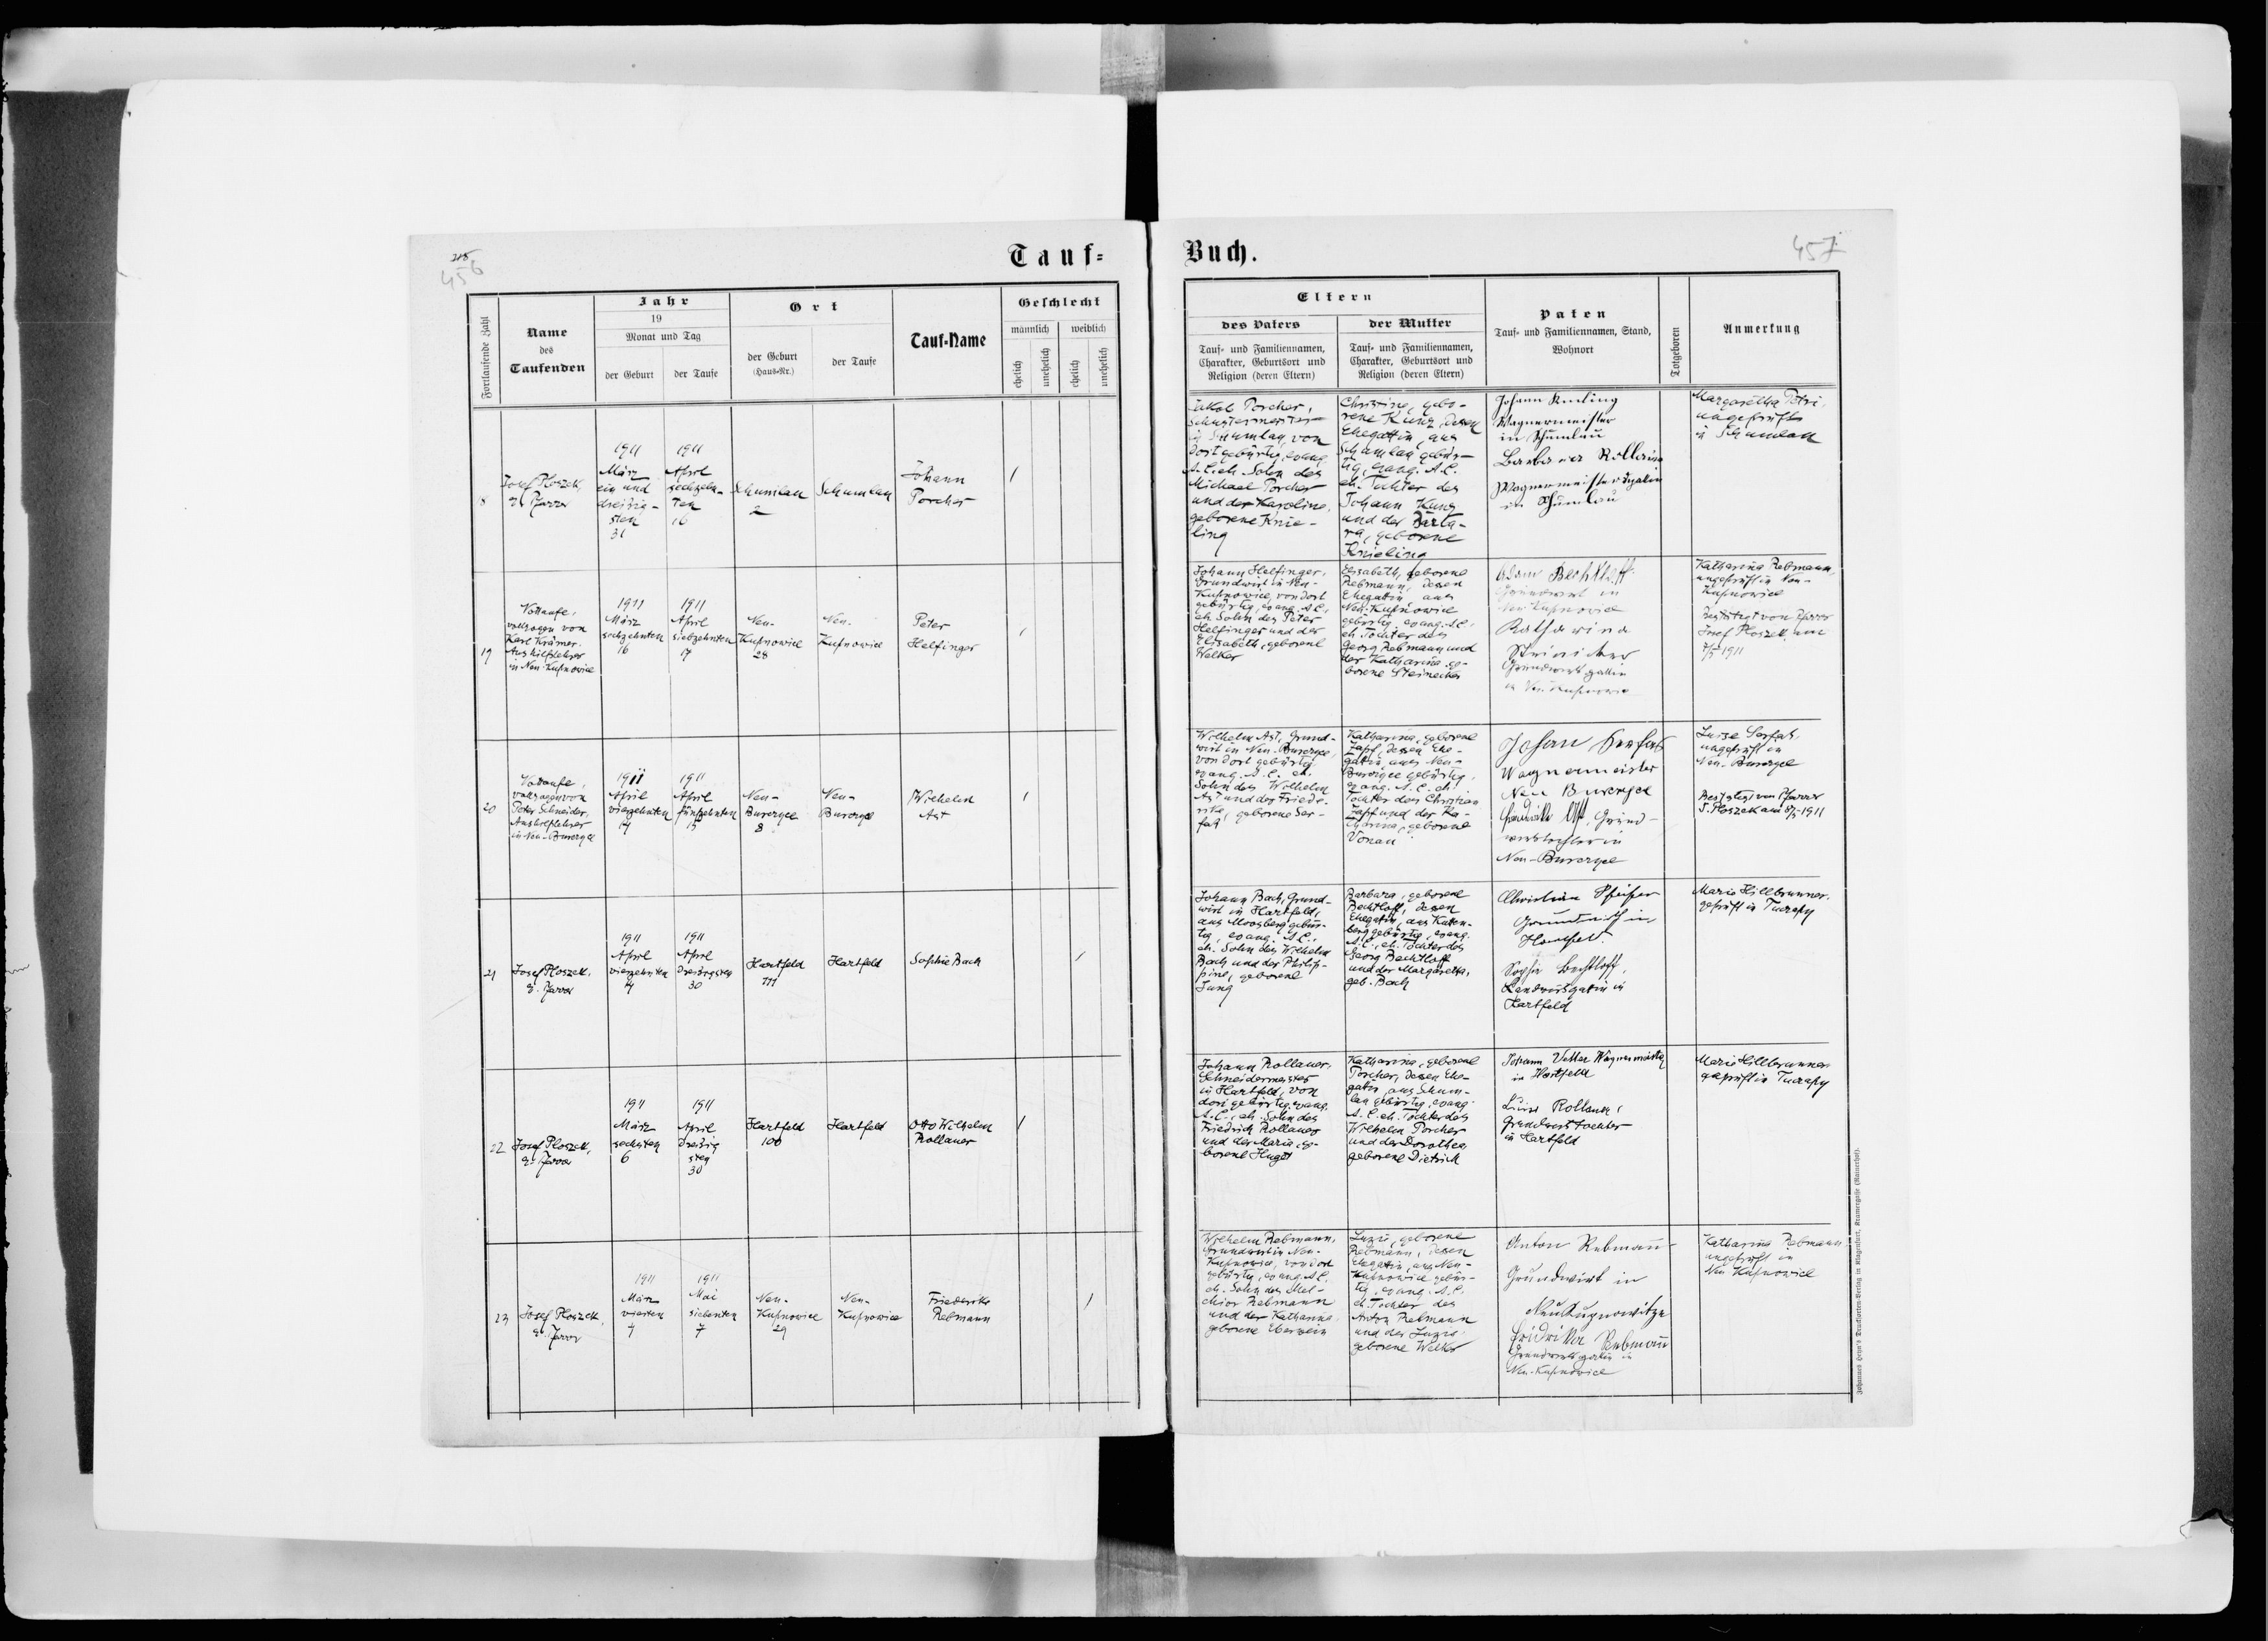 456
Tauf=
Fortlaufende Zahl
Name
des
Taufenden
Jahr
19
Monat und Tag
der Geburt
der Taufe
Ort
der Geburt
(Haus-Nr.)
der Taufe
Tauf-Name
Geschlecht
männlich
weiblich
ehelich
unehelich
ehelich
unehelich
18
Josef Ploszek,
ev. Pfarrer
1911
März
ein und
dreißig-
sten
31
1911
April
sechzehn-
ten
16
Schumlau
2
Schumlau
Johann
Porcher
19
Nottaufe,
vollzogen von
Karl Krämer.
Aushilfslehrer
in Neu-Kupnowice
1911
März
sechzehnten
16
1911
April
siebzehnten
17
Neu-
Kupnowice
28
Neu-
Kupnowice
Peter
Helfinger
20
vollzogen von
Peter Schneider,
Aushilfslehrer
in Neu-Burczyce
1911
April
vierzehnten
14
1911
April
fünfzehnten
15
Neu-
Burczyce
8
Neu-
Burczyce
Wilhelm
Ast
21
Josef Ploszek,
ev. Pfarrer
1911
April
vierzehnten
14
1911
April
dreißigsten
30
Hartfeld
111
Hartfeld
Sophie Bach
22
Josef Ploszek,
ev. Pfarrer
1911
März
sechsten
6
1911
April
dreißig
sten
30
Hartfeld
100
Hartfeld
Otto Wilhelm
Rollauer
23
Josef Ploszek,
ev. Pfarrer
1911
März
vierten
4
1911
Mai
siebenten
7
Neu-
Kupnowice
29
Neu-
Kupnowice
Friederike
Rebmann
Buch.
457
Eltern
des Vaters
Tauf- und Familiennamen,
Charakter, Geburtsort und
Religion (deren Eltern)
der Mutter
Tauf- und Familiennamen,
Charakter, Geburtsort und
Religion (deren Eltern)
Paten
Tauf- und Familiennamen, Stand,
Wohnort
Totgeboren
Anmerkung
Jakob Porcher,
Schustermeister
in Schumlau, von
dort gebürtig, evang.
A.C. eh. Sohn des
Michael Porcher
und der Karoline,
geborene Knie-
ling
Christine, gebo-
rene Kunz, dessen
Ehegattin, aus
Schumlau gebür-
tig, evang. A.C.
eh. Tochter des
Johann Kunz
und der Barba-
ra, geborene
Knieling
Johann
Wagnermeister
in Schumlau
Barbara Rollauer
Wagnermeistersgattin
in Schumlau
Margaretha Petri,
ungeprüft
in Schumlau
Johann Helfinger,
Grundwirt in Neu-
Kupnowice, von dort
gebürtig, evang. A.C.
eh. Sohn des Peter
Helfinger und der
Elisabeth, geborene
Welker
Elisabeth, geborene
Rebmann, dessen
Ehegattin aus
Neu-Kupnowice
gebürtig, evang. A.C.
eh. Tochter des
Georg Rebmann und
der Katharina, ge-
borene Steinecker
Adam Bechtloff
Grundwirt in
Neu Kupnowice
Katharina
Steinicker
Grundwirtgattin
in Neu Kupnowice
Katharina Rebmann,
ungeprüft in Neu-
Kupnowice
Bestätigt von Pfarrer
Josef Ploszek am
7/5 1911
Wilhelm Ast, Grund-
wirt in Neu-Burczyce,
von dort gebürtig,
evang. A.C. eh.
Sohn des Wilhelm
Ast und der Friede-
rike, geborene Ser-
fas
Katharina, geborene
Zapf, dessen Ehe-
gattin, aus Neu-
Burczyce gebürtig,
evang. A.C. eh.
Tochter des Christian
Zapf und der Ka-
tharina, geborene
Vonau
Johan Serfas
Wagnermeister
Neu Burczyce
Ast, Grund-
wirtstochter in
Neu-Burczyce
Luise Serfas,
ungeprüft in
Neu-Burczyce
Bestätigt von Pfarrer
J. Ploszek am 8/5 1911
Johann Bach, Grund-
wirt in Hartfeld,
aus Moosberg gebür-
tig, evang. A.C.
eh. Sohn des Wilhelm
Bach und der Philip-
pine, geborene
Jung
Barbara, geborene
Bechtloff, dessen
Ehegattin, aus Katen-
berg gebürtig, evang.
A.C., eh. Tochter des
Georg Bechtloff
und der Margaretha,
geb. Bach
Christian Pfeifer
Grundwirth in
Hartfeld.
Sophie Bechtloff,
Landwirtsgattin in
Hartfeld
Marie Hillbrunner,
geprüft in Tuczapy
Johann Rollauer,
Schneidermeister
in Hartfeld, von
dort gebürtig, evang.
A.C., eh. Sohn des
Friedrich Rollauer
und der Maria, ge-
borene Huget
Katharina, geborene
Porcher, dessen Ehe-
gattin, aus Schum-
lau gebürtig, evang.
A.C. eh. Tochter des
Wilhelm Porcher
und der Dorothea
geborene Dietrich
Johann Vetter Wagnermeister
in Hartfeld
Luise Rollauer,
Grundwirtstochter
in Hartfeld
Marie Hillbrunner
geprüft in Tuczapy
Wilhelm Rebmann,
Grundwirt in Neu-
Kupnowice, von dort
gebürtig, evang. A.C.
eh. Sohn des Mel-
chior Rebmann
und der Katharina,
geborene Eberwein
Luzie, geborene
Rebmann, dessen
Ehegattin, aus Neu-
Kupnowice gebür-
tig, evang. A.C.
eh. Tochter des
Anton Rebmann
und der Luzie,
geborene Welker
Anton Rebmann
Grundwirt in
Neu Kupnowitze
Fridrika Rebmann
Grundwirtsgattin in
Neu-Kupnowice
Katharina Rebmann
ungeprüft in
Neu Kupnowice
Johannes Heyn's Drucksorten-Verlag in Klagenfurt, Kramergasse (Kainerhof).